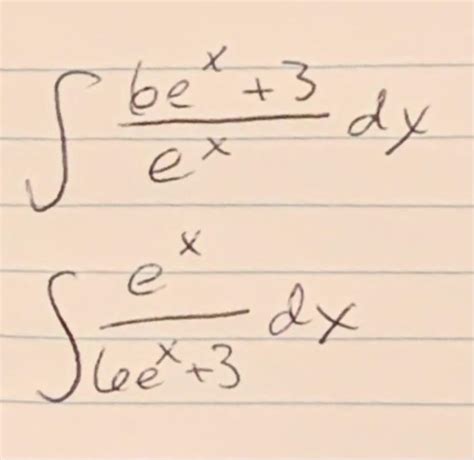 ∫ (6e^x + 3)/(e^x) dx
∫ (e^x)/(6e^x + 3) dx